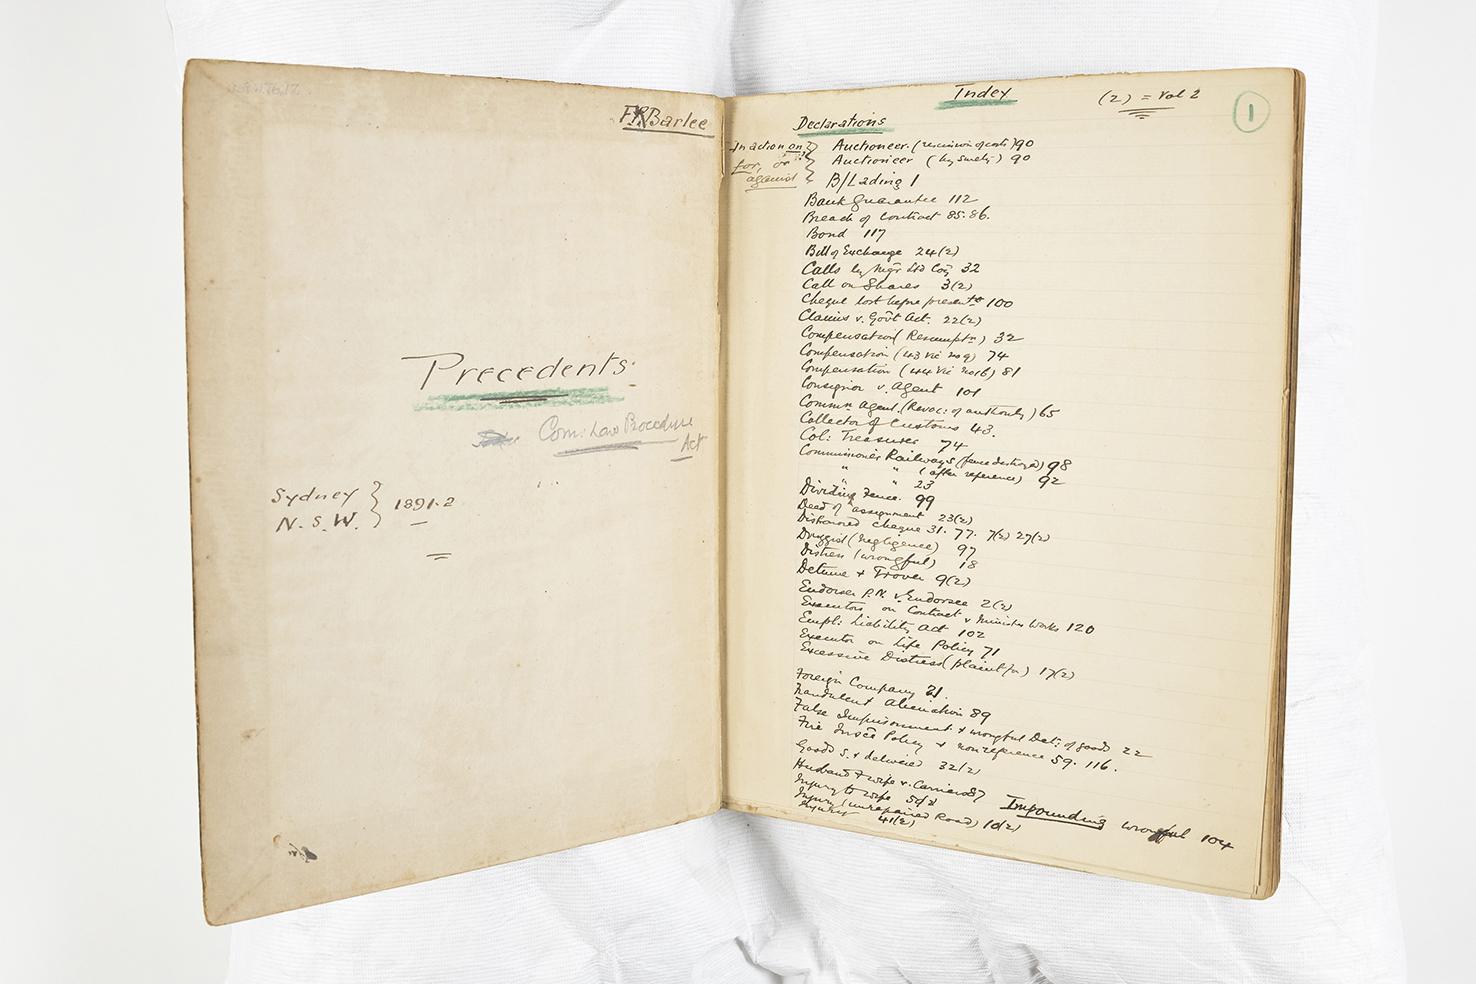 F.R. Barlee
Precedents
Com: Law Procedure
Act
Sydney
N.S.W. } 1891-2
Index
(2) = Vol 2
1
Declarations
In action on
for, or
against
Auctioneer. (recission of contr) 90
Auctioneer (by surety) 90
B/Lading 1
Bank Guarantee 112
Breach of Contract 85.86.
Bond 117
Bill of Exchange 24(2)
Calls by Mgr Ltd Coy 32
Call on Shares 3(2)
Cheque lost before present 100
Claims v. Govt Act. 22(2)
Compensation (Resumptn) 32
Compensation (43 Vic no 9) 74
Compensation (44 Vic no 16) 81
Consignor v. Agent 101
Commn Agent. (Revoc: of authority) 65
Collector of Customs 43.
Col: Treasurer 74
Commissioner Railways (fence destroyed) 98
" " (after reference) 92
" " 23
Dividing Fence. 99
Deed of assignment 23(2)
Dishonored Cheque 31. 77. 7(2) 27(2)
Druggist (negligence) 97
Distress (wrongful) 18
Detinue & Trover 9(2)
Endorser P.N. v. Endorsee 2(2)
Executors on Contract v Minister Works 120
Empl: Liability Act 102
Executor on Life Policy 71
Excessive Distress (plaint f/n) 17(2)
Foreign Company 21.
Fraudulent alienation 89
False Imprisonment & wrongful Det: of goods 22
Fire Insce Policy & non reference 59. 116.
Goods s. & delivered 32(2)
Husband & wife v. Carriers 87
Injury to wife
Injury (unrepaired Road) 10(2)
Injury 41(2)
Impounding wrongful 104